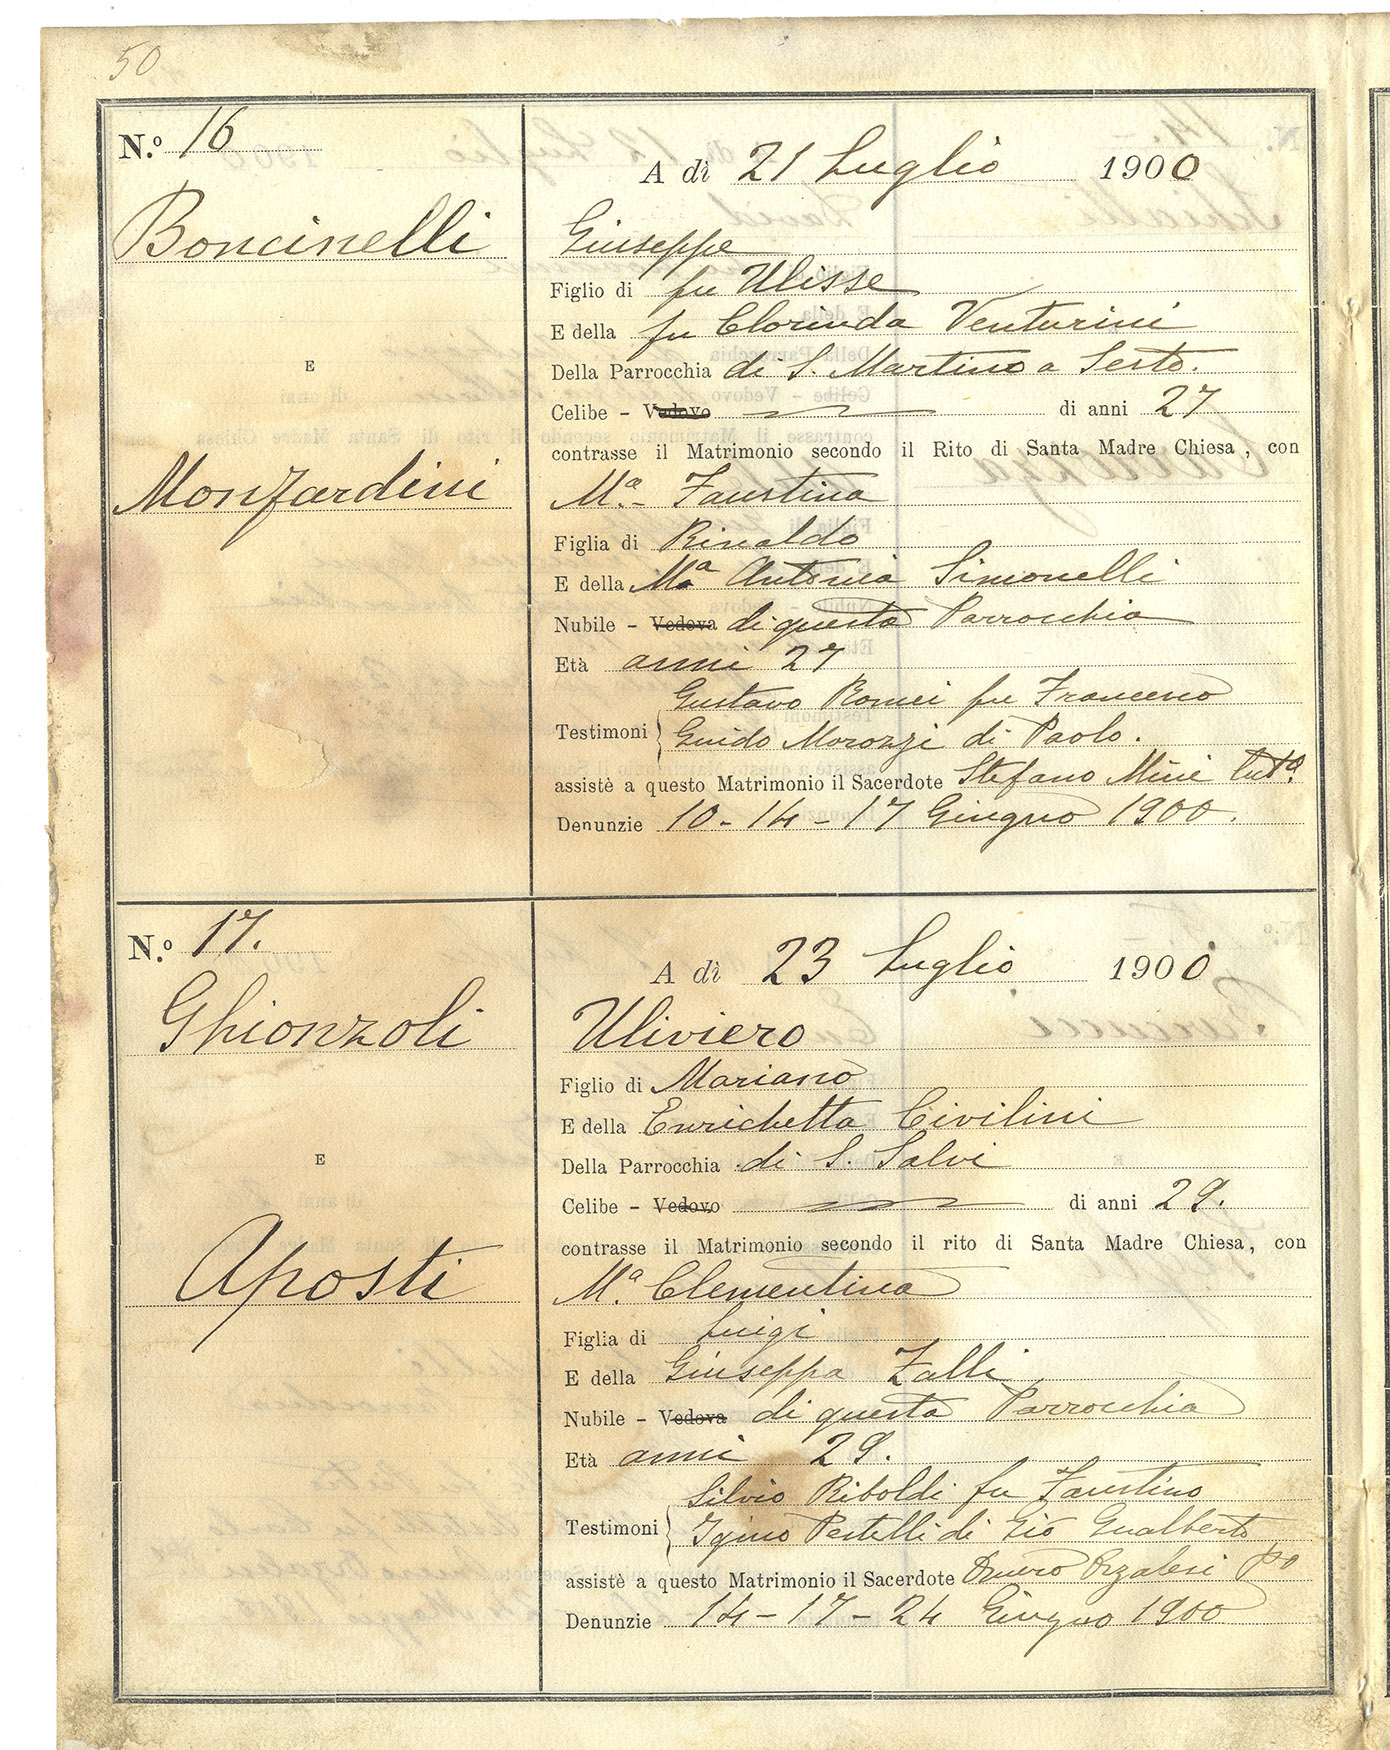 50
N.º 16
A dì 21 Luglio 1900
Boncinelli
Giuseppe
Figlio di fu Ulisse
E della fu Clorinda Venturini
E
Della Parrocchia di S. Martino a Sesto.
Celibe - Vedovo di anni 27
contrasse il Matrimonio secondo il Rito di Santa Madre Chiesa, con
Monzardini
Mª Faustina
Figlia di Rinaldo
E della Mª Antonia Simonelli
Nubile - Vedova di questa Parrocchia
Età anni 27
Gustavo Romei fu Francesco
Testimoni Guido Morozzi di Paolo.
assistè a questo Matrimonio il Sacerdote Stefano Mini
Denunzie 10 - 14 - 17 Giugno 1900.
N.º 17.
A dì 23 Luglio 1900
Ghionzoli
Uliviero
Figlio di Mariano
E della Enrichetta Civilini
E
Della Parrocchia di S. Salvi
Celibe - Vedovo di anni 29.
contrasse il Matrimonio secondo il rito di Santa Madre Chiesa, con
Aposti
Mª Clementina
Figlia di Luigi
E della Giuseppa Zalli
Nubile - Vedova di questa Parrocchia
Età anni 29.
Silvio Riboldi fu Faustino
Testimoni Igino Pestelli di Gio Gualberto
assistè a questo Matrimonio il Sacerdote Orzalesi
Denunzie 14 - 17 - 24 Giugno 1900